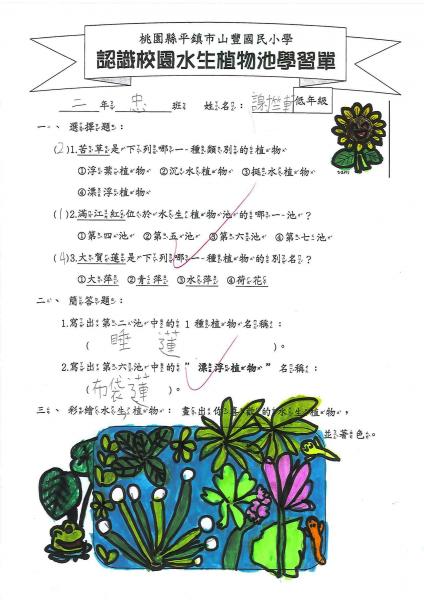 桃園縣平鎮市山豐國民小學
認識校園水生植物池學習單
二 年 忠 班 姓名： 謝 軒 低年級
一、選擇題：
(2)1.苦草是下列哪一種類別的植物
①浮葉植物 ②沉水植物 ③挺水植物
④漂浮植物
(1)2.滿江紅位於水生植物池的哪一池？
①第四池 ②第五池 ③第六池 ④第七池
(4)3.大賀蓮是下列哪一種植物的別名？
①大萍 ②青萍 ③水萍 ④荷花
二、簡答題：
1.寫出第二池中的 1 種植物名稱：
( 睡 蓮 )。
2.寫出第六池中的" 漂浮植物" 名稱：
( 布袋蓮 )。
三、彩繪水生植物： 畫出你喜歡的水生植物，
並著色。